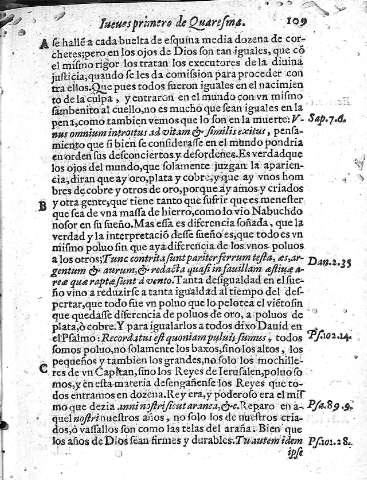 Iueues primero de Quaresma. 109
A se hallē a cada buelta de esquina media dozena de cor-
chetes; pero en los ojos de Dios son tan iguales, que cō
el mismo rigor los tratan los executores de la diuina
justicia, quando se les da comission para proceder con
tra ellos. Que pues todos fueron iguales en el nacimien
to de la culpa, y entraron en el mundo con vn mismo
sambenito al cuello, no es mucho que sean iguales en la
pena, como tambien vemos que lo son en la muerte: V- Sap. 7. 6.
nus omnium introitus ad vitam & similis exitus, pensa-
miento que si bien se considerasse en el mundo pondria
en orden sus desconciertos y desordenes. Es verdad que
los ojos del mundo, que solamente juzgan la aparien-
cia, diran que ay oro, plata y cobre, y que ay vnos hom
bres de cobre y otros de oro, porque ay amos y criados
B y otra gente, que tiene tanto que sufrir que es menester
que sea de vna massa de hierro, como lo vio Nabuchdo
nosor en su sueño. Mas essa es diferencia soñada, que la
verdad y la interpretació desse sueño es, que todo es vn
mismo poluo sin que aya diferencia de los vnos poluos
a los otros; Tunc contrita sunt pariter ferrum testa, æs, ar- Dan. 2. 35
gentum & aurum, & redacta quasi in fauillam æstiuæ a-
reæ quæ rapta sunt à vento. Tanta desigualdad en el sue-
ño vino a reduzirse a tanta igualdad al tiempo del des-
pertar, que todo fue vn poluo que lo pelotea el viēto sin
que quedasse diferencia de poluos de oro, a poluos de
plata, ò cobre. Y para igualarlos a todos dixo Dauid en
el Psalmo: Recordatus est quoniam puluis sumus, todos Ps. 102. 14.
somos poluo, no solamente los baxos, sino los altos, los
pequeños y tambien los grandes, no solo los mochille-
C res de vn Capitan, sino los Reyes de Ierusalen, poluo so
mos, y en esta materia desengañense los Reyes que to-
dos entramos en dozena. Rey era, y poderoso era el mis
mo que dezia anni nostri sicut aranea, &c. Reparo en a- Psa. 89. 9.
quel nostri nuestros años, no solo los de nuestros cria-
dos, ò vassallos son como las telas del araña: Bien que
los años de Dios sean firmes y durables. Tu autem idem Ps. 101. 28.
ipse